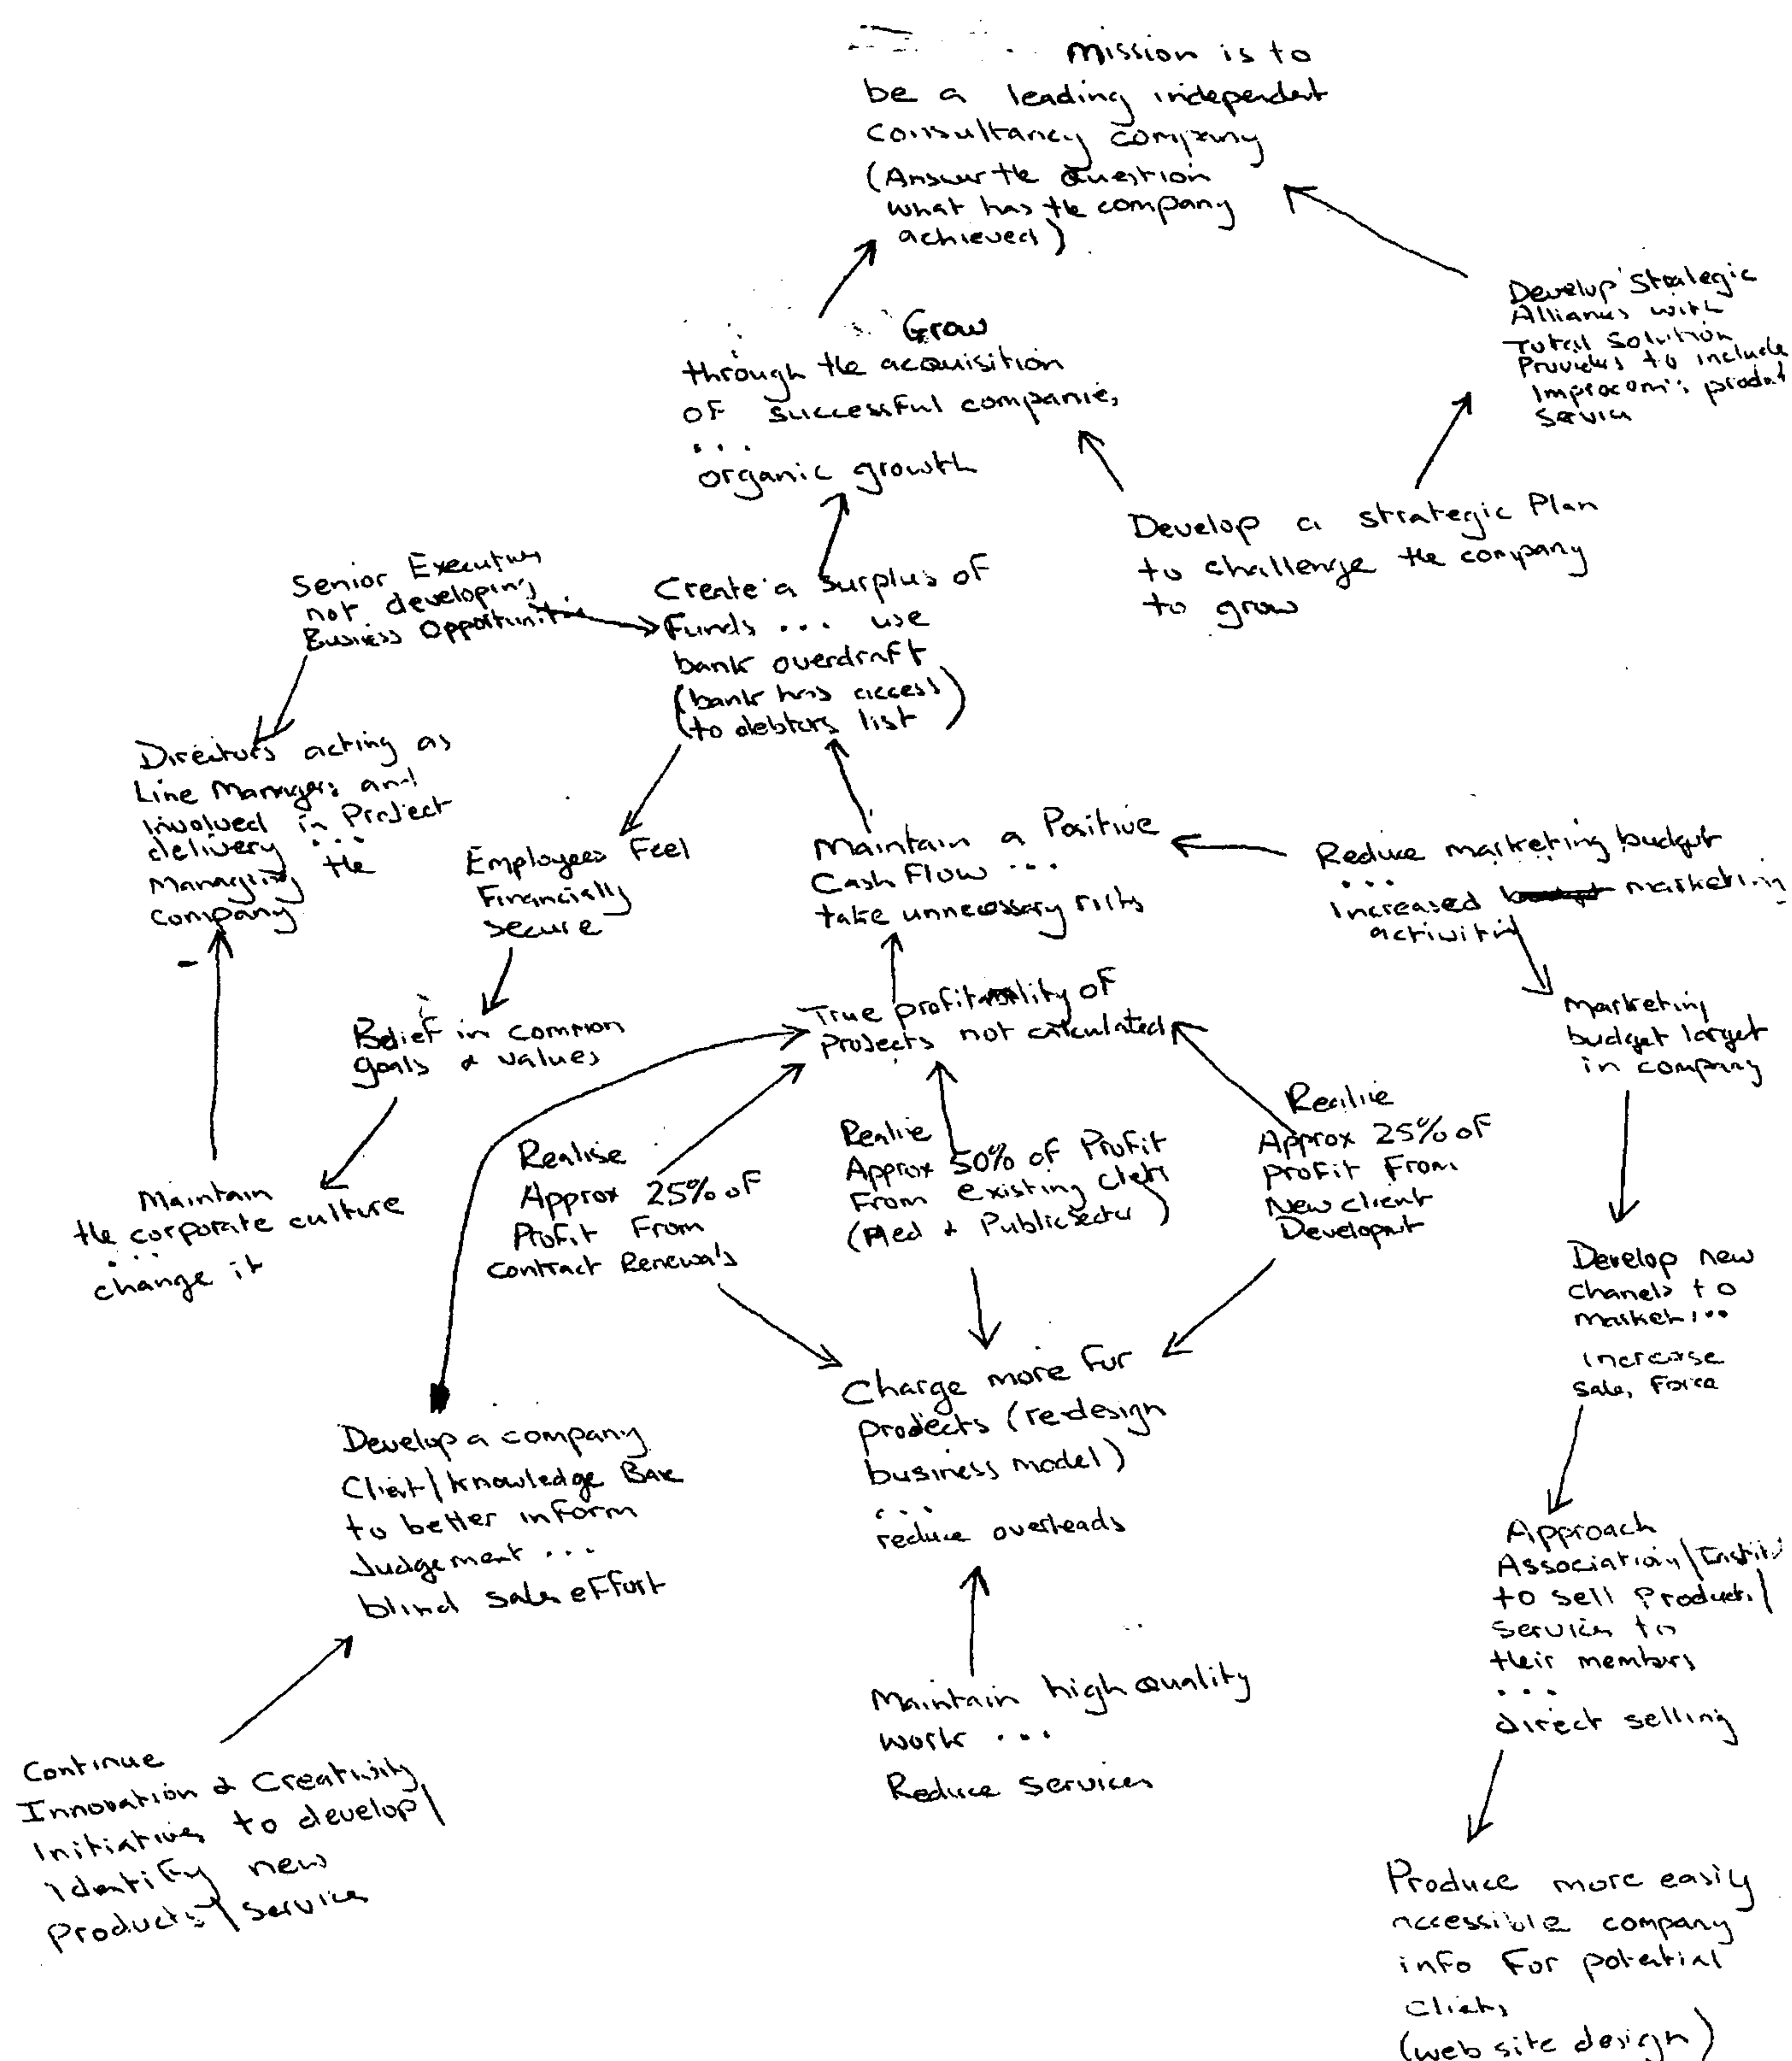 Mission is to
be a leading independent
consultancy company
(Answer the question
what has the company
achieved)
Develop Strategic
Alliances with
Total Solution
Providers to include
Improcom's product
service
Grow
through the acquisition
of successful companies
...
organic growth
Develop a strategic Plan
to challenge the company
to grow
Senior Executives
not developing
Business Opportunities
Create a surplus of
Funds ... use
bank overdraft
(bank has access)
(to debtors list)
Directors acting as
Line Managers and
involved in Project
delivery ...
Managing the
company
Employees Feel
Financially
secure
Maintain a Positive
Cash Flow ...
take unnecessary risks
Reduce marketing budget
...
increased marketing
activities
Belief in common
goals & values
True profitability of
projects not calculated
Marketing
budget largest
in company
Maintain
the corporate culture
...
change it
Realise
Approx 25% of
Profit From
contract Renewals
Realise
Approx 50% of Profit
From existing clients
(Med & Public Sector)
Realise
Approx 25% of
profit From
New client
Develop new
chanels to
market ...
increase
sales Force
Develop a company
Client/Knowledge Base
to better inform
Judgement ...
blind sales effort
Charge more for
projects (re-design
business model)
...
reduce overheads
Approach
Association/Instit
to sell Products/
services to
their members
...
direct selling
Maintain high quality
work ...
Reduce services
Continue
Innovation & Creativity
Initiatives to develop/
identify new
products/service
Produce more easily
accessible company
info For potential
clients
(web site design)